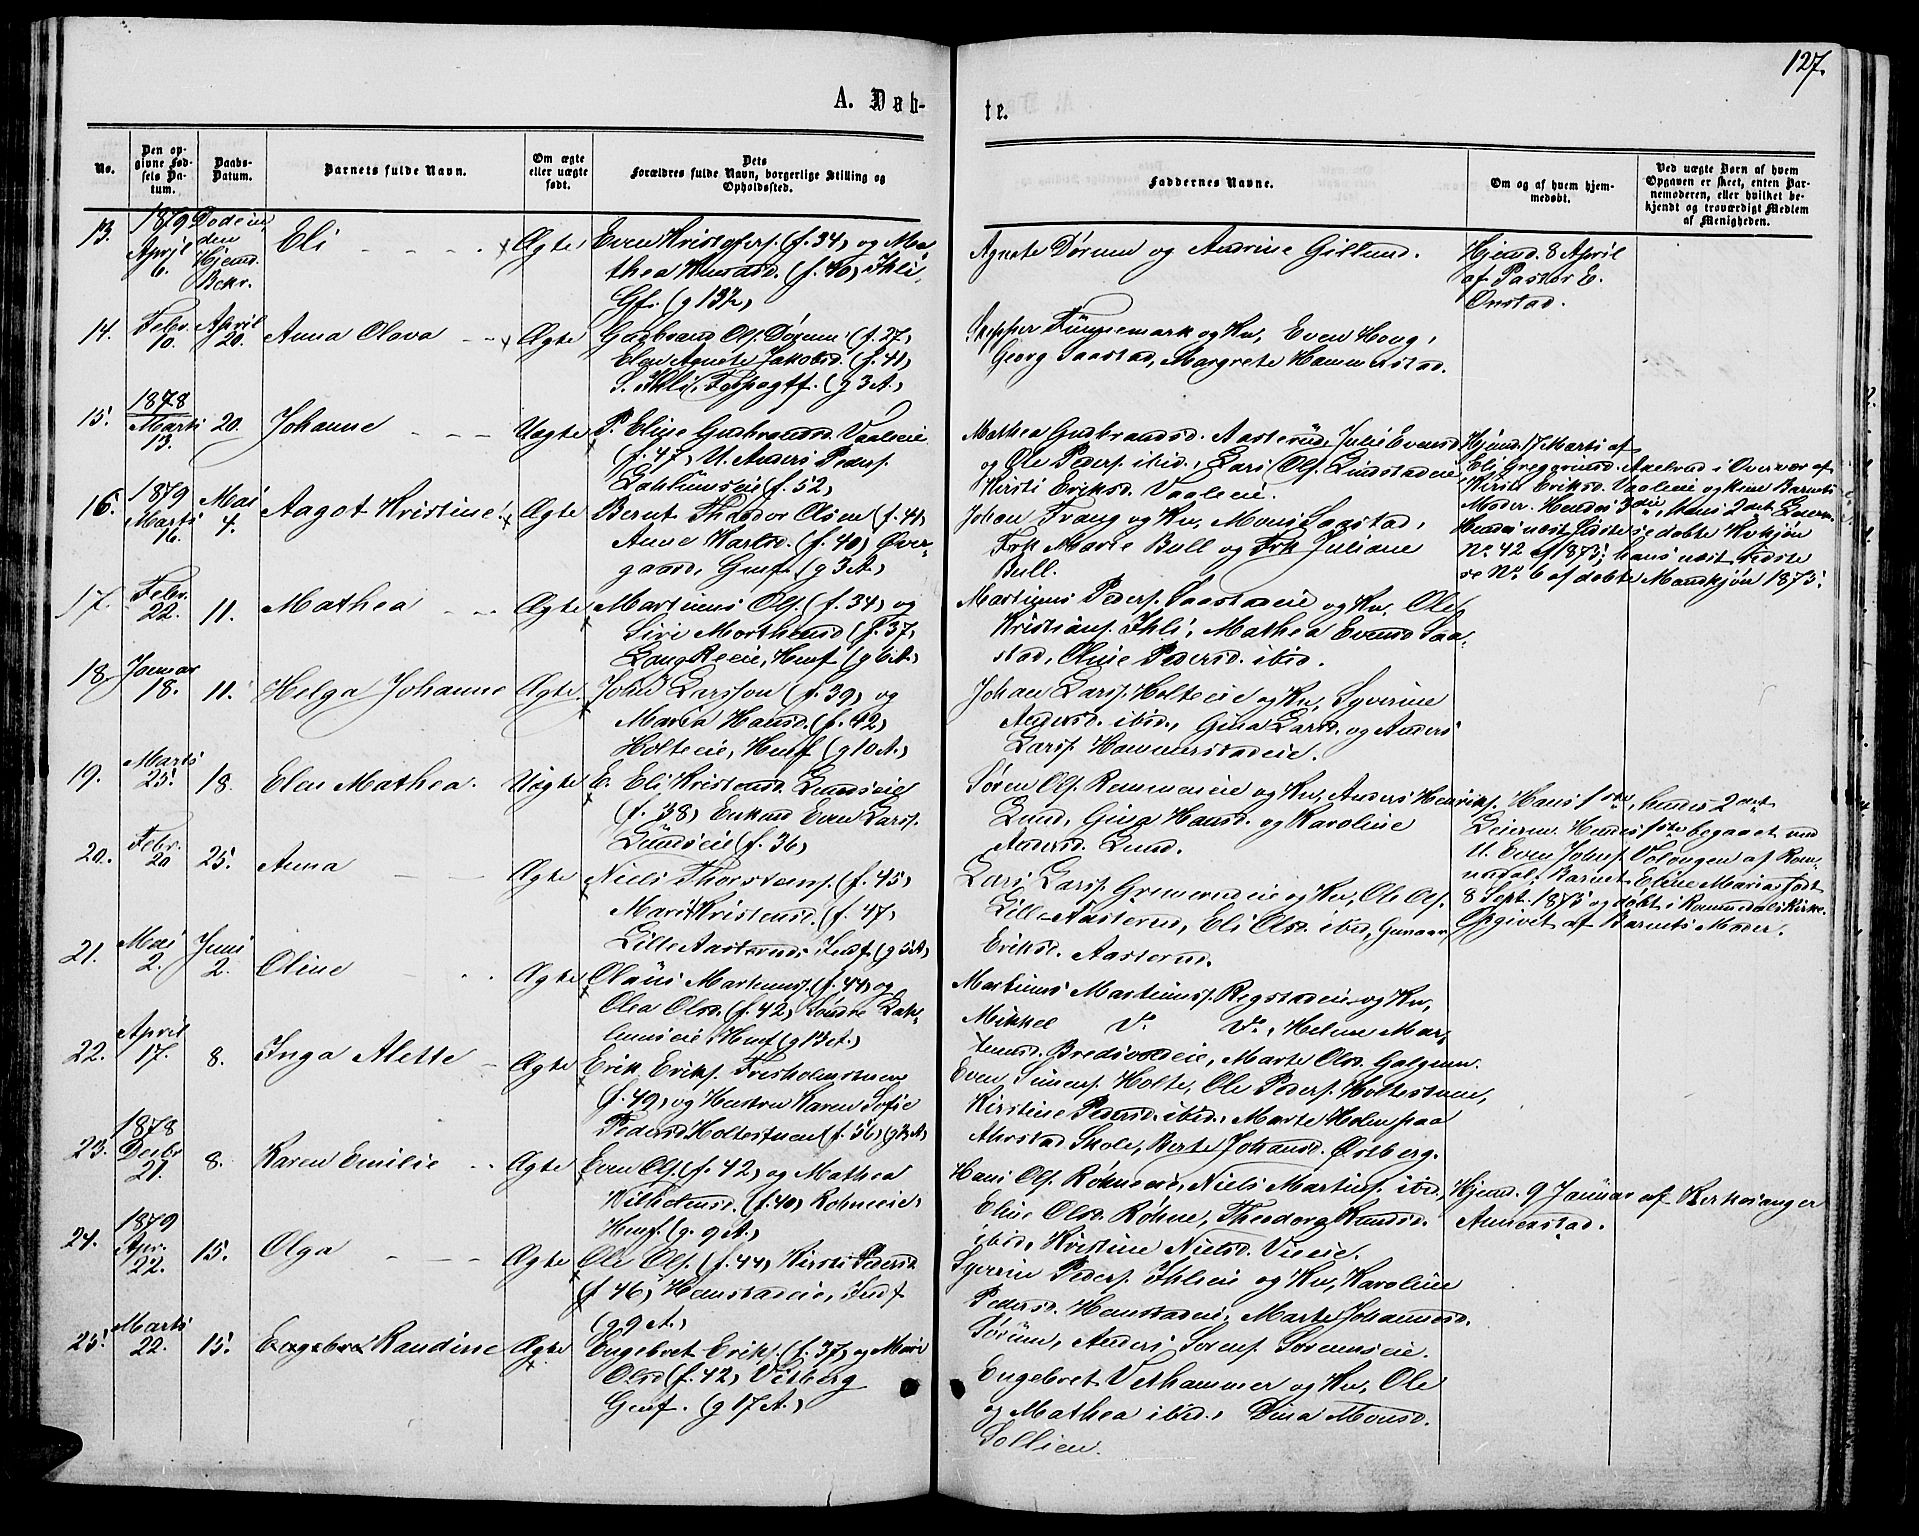 127.
A. Døb-
te.
No.
Den op-
givne Fød-
sels Da-
tum.
Daabs-
Datum.
Barnets fulde Navn.
Om ægte
eller uægte
født.
Dets
Forældres fulde Navn, borgerlige Stilling og
Opholdssted.
Faddernes Navne.
Om og af hvem hjem-
medøbt.
Ved uægte Børn af hvem
Opgaven er skeet, enten Bar-
nemoderen, eller hvilket be-
kjendt og troværdigt Medlem
af Menigheden.
13.
1879
April
6.
Døde in
den
Hjemd.
Bekr.
Eli
Ægte
Even Kristofersp. (f. 34) og Ma-
thea Knudsd. (f. 40) Ihli,
Gf. (g 13
Agnete Dørum og Andrine Gillund.
Hjemd. 8 April
af Pastor E.
Onstad.
14.
Febr.
10.
April
20.
Anna Olava
Ægte
Gudbrand Ols. Dørum (f. 27)
Elen Agnete Jakobsd. (f. 41)
S. Ihli, Forpagtf. (g 3 A.)
og Kv, Even Houg,
Georg Saastad, Margrete Hammerstad.
15.
1878
Marts
13.
20.
Johanne
Uægte
P. Eline Gudbrandsd. Vaaleie
(f. 47) U. Anders Peders.
Laklumseie (f. 52)
Mathea Gudbrandsd. Aasterud, Julie Evensd.
og Ole Peders. ibid., Lars Ols. Lundstadeie
Kirsti Eriksd. Vaaleie.
Hjemd. 17 Marts af
Eli Axelrud i Overvær af
Kirsti Eriksd. Vaaleie og kun Barnets
Moder. Hendes 3die, hans 2det Leierm.
Hendes næst sidste se døbte Kvkjøn
No. 42 af 1873; hans næst sidste
se No. 6 af døbte Mandkjøn 1873.
16.
1879
Marts
16.
Mai
4.
Aagot Kristine
Ægte
Bernt Theodor Olsen (f. 41)
Anne Karlsd. (f. 40) Over-
gaard, Gmf. (g 3 A.)
Johan Trang og Kv, Mons Saastad,
Frk Marie Bull og Frk Juliane
Bull.
17.
Febr.
22.
11.
Mathea
Ægte
Martinus Ols. (f. 34) og
Siri Morthensd (f. 37)
Langrxeie, Hmf (g 6 A.)
Martinus Peders. Saastadeie og Kv, Ole
Kristians. Ihli, Mathea Evensd Saa-
stad, Oline Pedersd. ibid.
18.
Januar
18.
11.
Helga Johanne
Ægte
John Larsson (f. 39) og
Maria Hansd. (f. 42)
Holteeie, Hmf (g 10 A.)
Johan Larss. Holteeie og Kv, Syverine
Andersd. ibid., Gina Larsd. og Anders
Larss. Hammerstadeie.
19.
Marts
25.
18.
Elen Mathea.
Uægte
E. Eli Kristensd. Lundseie
(f. 38) Enkmd Even Larss.
Lundseie (f. 36)
Søren Ols. Remmeieie og Kv, Anders Henriks.
Lund, Gina Hansd. og Karoline
Andersd. Lund.
Hans 1ste, hendes 2det
Leierm. Hendes 1ste begaaet med
U. Even Johns. af Rom-
medal. Barnet Eline Maria født
8 Sept. 1873 og døbt i Rommedals Kirke.
Opgivet af Barnets Moder.
20.
Febr.
20
25.
Anna
Ægte
Niels Thorstens. (f. 45)
Marit Kristensd. (f. 47)
Lille Aasterud, Indf (g 5 A.)
Lars Larss. Grimerudeie og Kv, Ole Ols.
Lille-Aasterud, Eli Olsd. ibid, Gunaar
Eriksd. Aasterud.
21.
Mai
2.
Juni
2.
Oline
Ægte
Olaus Martinus. (f. 44) og
Olea Olsd. (f. 42) Søndre Lak-
lumseie Hmf (g 13 A.)
Martinus Martinuss. Rogstadeie og Kv,
Mikkel Do. Do., Helene Mar-
tinusd. Bredsvoldeie, Marte Olsd. Galgum.
22.
April
17.
8.
Inga Alette
Ægte
Erik Eriks. Fresholmstuen
(f. 49) og Hustru Karen Sofie
Pedersd. Holtestuen (f. 56) (g 3 A)
Even Simens. Holte, Ole Peders. Holtestuen,
Kirstine Pedersd. ibid., Marte Holen paa
Ahrstad Skole, Berte Johansd. Østberg.
23.
1878
Decbr
21.
8.
Karen Emilie
Ægte
Even Ols. (f. 42) og Mathea
Vilhelmsd. (f. 40) Røhneeie,
Hmf (g. 9 A.)
Hans Ols. Røhneeie, Niels Martins. ibid,
Eline Olsd. Røhne, Theodora Knudsd.
ibid, Kristine Nielsd. Vieeie.
Hjemd. 9 Januar af Kirkesanger
Annerstad.
24.
1879
Apr.
22.
15.
Olga
Ægte
Ole Ols. (f. 44) Kirsti Pedersd
(f. 46) Honstadeie, Indf
(g 9 A.)
Syverin Peders. Ihlieie og Kv, Karoline
Pedersd. Honstadeie, Marte Johannesd.
Sørum, Anders Sørens. Sørumseie.
25.
Marts
22.
15.
Engebret Randine
Ægte
Engebret Eriks. (f. 37) og Mari
Olsd (f. 42) Vesberg
Gmf. (g 17 A.)
Engebret Vethammer og Kv, Ole
og Mathea ibid., Dina Monsd.
Sollien.